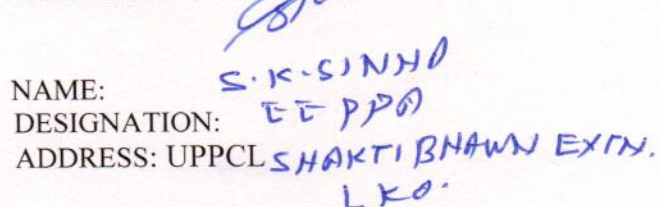 NAME: S.K.SINHA
DESIGNATION: EE PPA
ADDRESS: UPPCL SHAKTI BHAWN EXTN.
LKO.